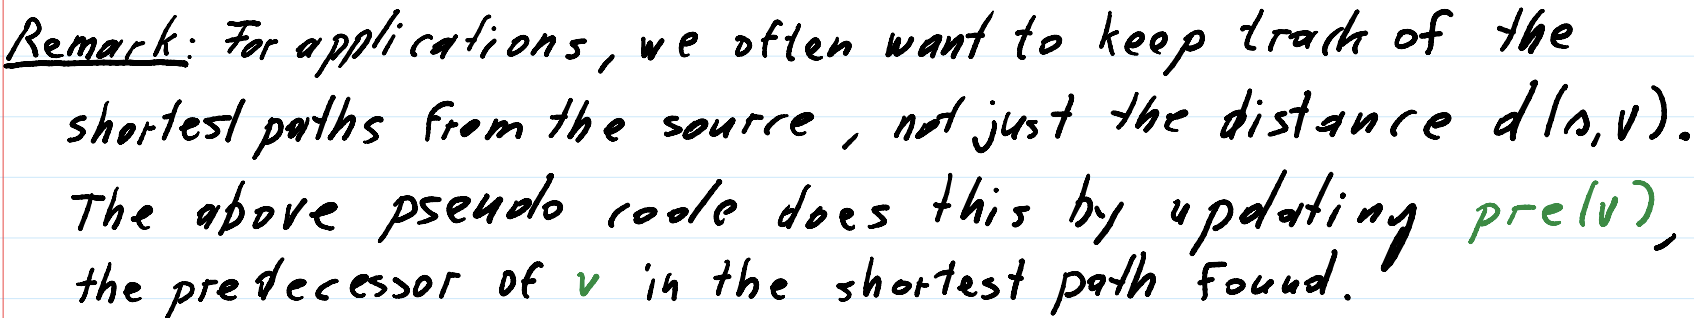 Remark: For applications, we often want to keep track of the
shortest paths from the source, not just the distance d(s,v).
The above pseudo code does this by updating pre(v),
the predecessor of v in the shortest path found.